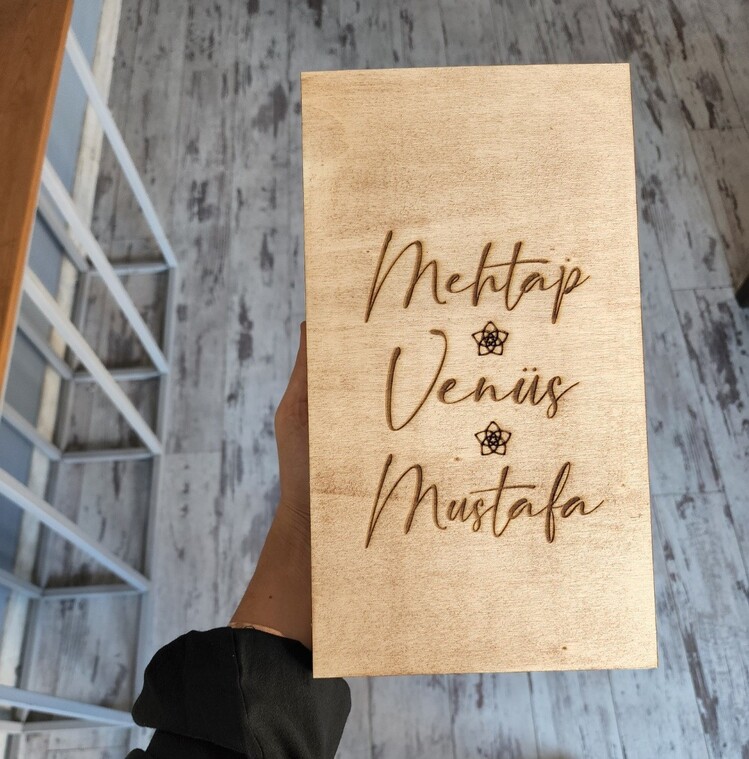 Mehtap
Venüs
Mustafa